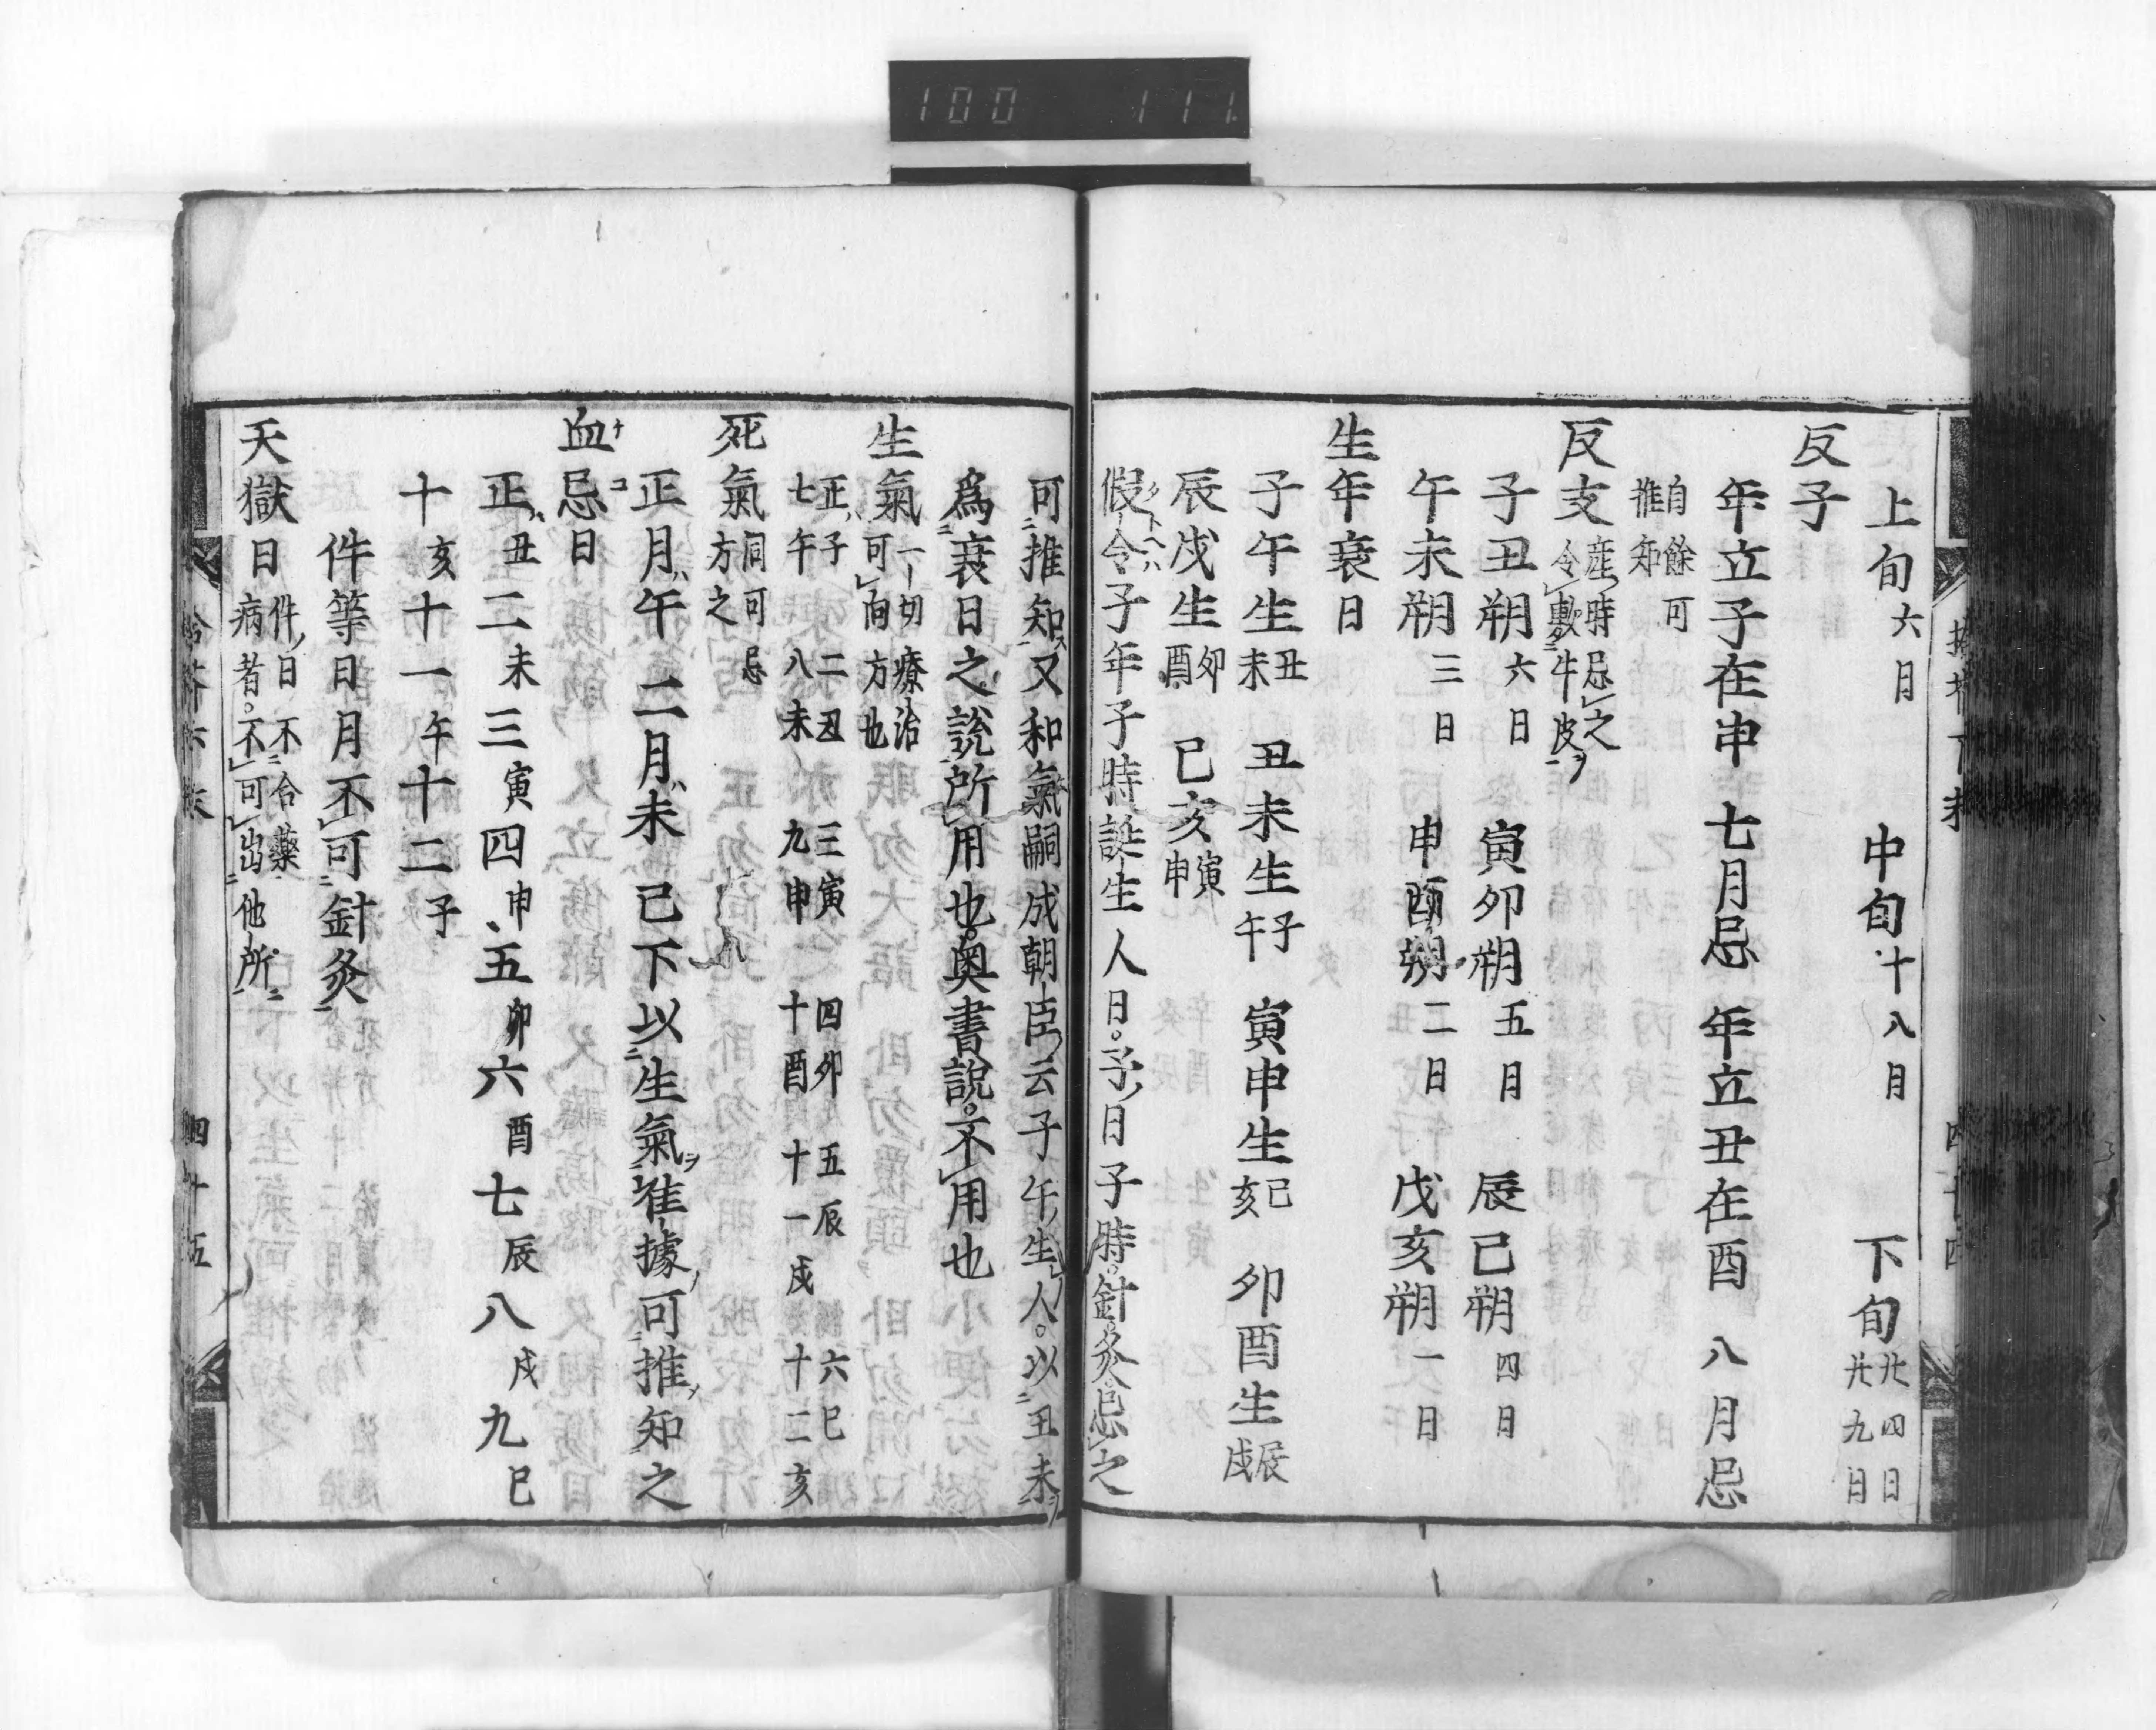 100 111
上旬六月 中旬十八月 下旬廿四日廿九日
反子
年立子在申 七月忌 年立丑在酉 八月忌
自餘可推知
反支産時忌之令敷牛皮ヲ
子丑朔六日 寅卯朔五月 辰己朔四日
午未朔三日 申酉朔二日 戊亥朔一日
生年衰日
子午生丑未 丑未生子午 寅申生己亥 卯酉生辰戌
辰戌生卯酉 已亥生寅申
假令子年子時誕生人日。子ノ日子時。針灸忌之
可推知又和氣嗣成朝臣云子午生人。以丑未
爲衰日之說所用也。奥書說。不用也
生氣一切療治可向方也
正子 二丑 三寅 四卯 五辰 六巳
七午 八未 九申 十酉 十一戌 十二亥
死氣同可忌方之
正月午 二月未 已下以生氣准據可推知之
血忌日
正丑二未三寅四申五卯六酉七辰八戌九巳
十亥十一午十二子
件等日月不可針灸
天獄日件日不合藥病者。不可出他所
四十五